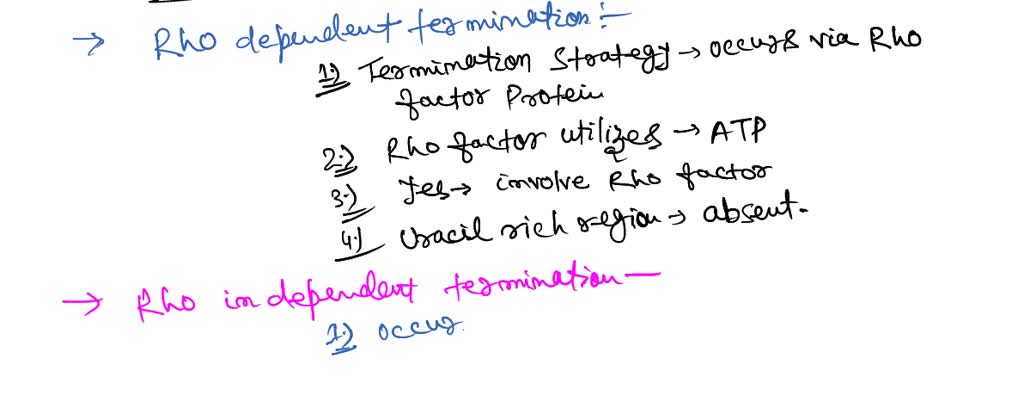 → Rho dependent termination:-
1) Termination Strategy → occurs via Rho
factor Protein
2) Rho factor utilizes → ATP
3) Yes → involve Rho factor
4) Uracil rich region → absent.
→ Rho independent termination —
1) occur